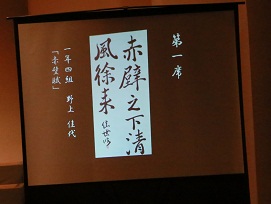 第一席
赤壁之下清
風徐来 佳世臨
一年四組 野上 佳代
「赤壁賦」